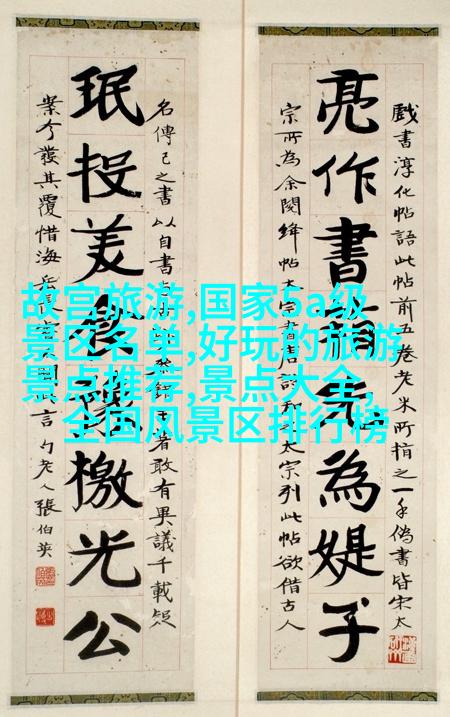 戲書淳化帖語此帖前五卷老米所指之一手偽書皆宋太
亮作書 氣為媞子
宗所為余閱絳帖太宗書 和之太宗列此帖欲借古人
名傳己之書以自書 著敢有異議千載疑
珉投美 檄光公
案今發其覆惜海岳 言 勺老人張伯英
故宫旅游,国家5a级
景区名单,好玩的旅游
景点推荐,景点大全,
全国风景区排行榜